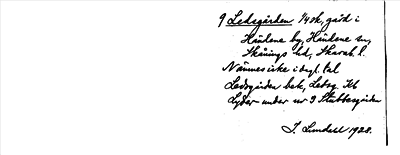 9 Ledsgården 1/4 sk, gård i
Händene by, Händene sn,
Skånings hd, Skarab. l.
Nämnes icke i dagl. tal
Ledsgården bek, Ledsg. Kb
Lyder under nr 9 Stubbagården
J. Lundell 1928.